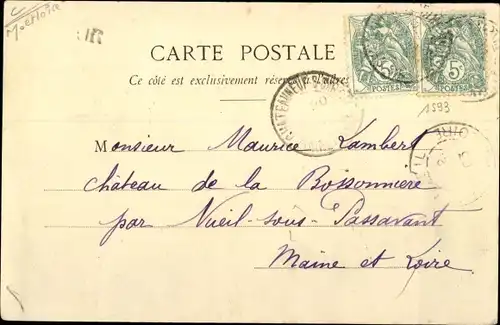 CARTE POSTALE
Ce côté est exclusivement réservé à l'adresse
5 POSTES
1593
Monsieur Maurice Lambert
château de la Boissonnière
par Nueil-sous-Passavant
Maine et Loire